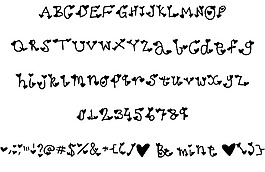 ABCDEFGHIJKLMNOP
QRSTUVWXYZabcdefg
hijklmnopqrstuvwxyz
0123456789
!?@#$%&+-(/♥ Be mint ♥\)}